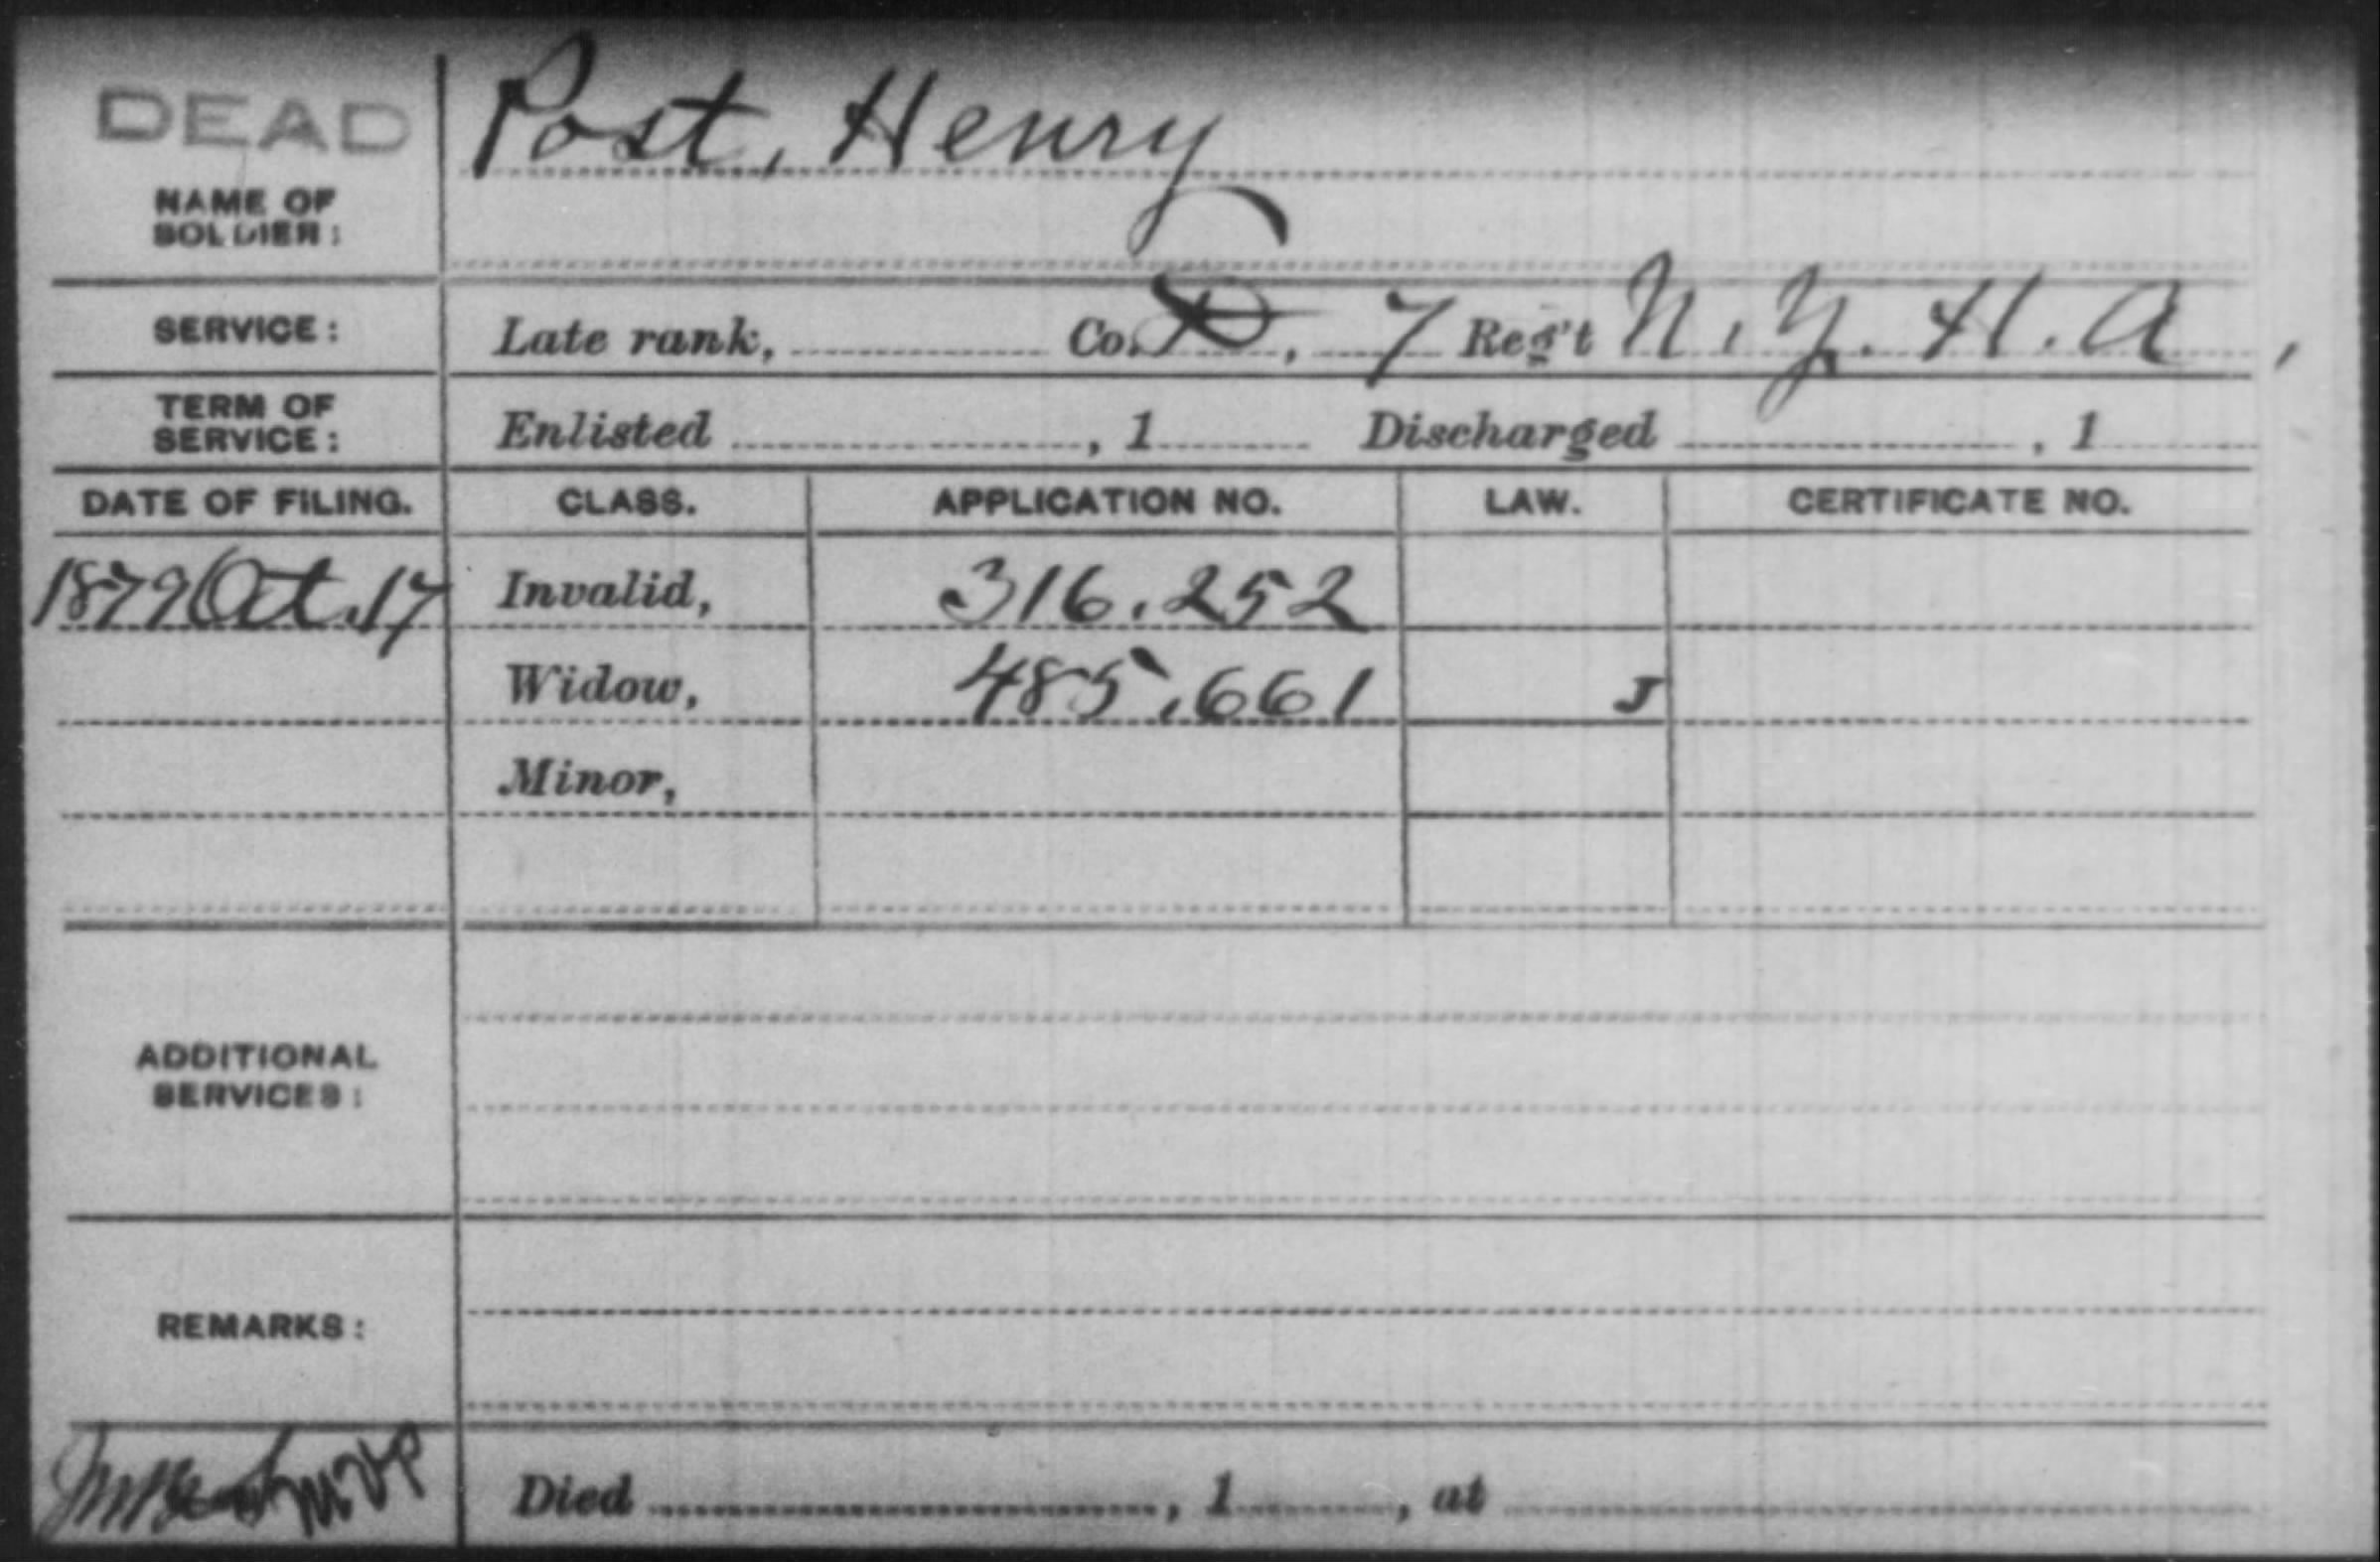 DEAD
Post, Henry
NAME OF
SOLDIER:
SERVICE: Late rank, Co. D, 7 Reg't N.Y. H.A,
TERM OF
SERVICE: Enlisted , 1 Discharged , 1
DATE OF FILING. CLASS. APPLICATION NO. LAW. CERTIFICATE NO.
1879 Oct. 17 Invalid, 316.252
Widow, 485.661 J
Minor,
ADDITIONAL
SERVICES:
REMARKS:
Died , 1 , at